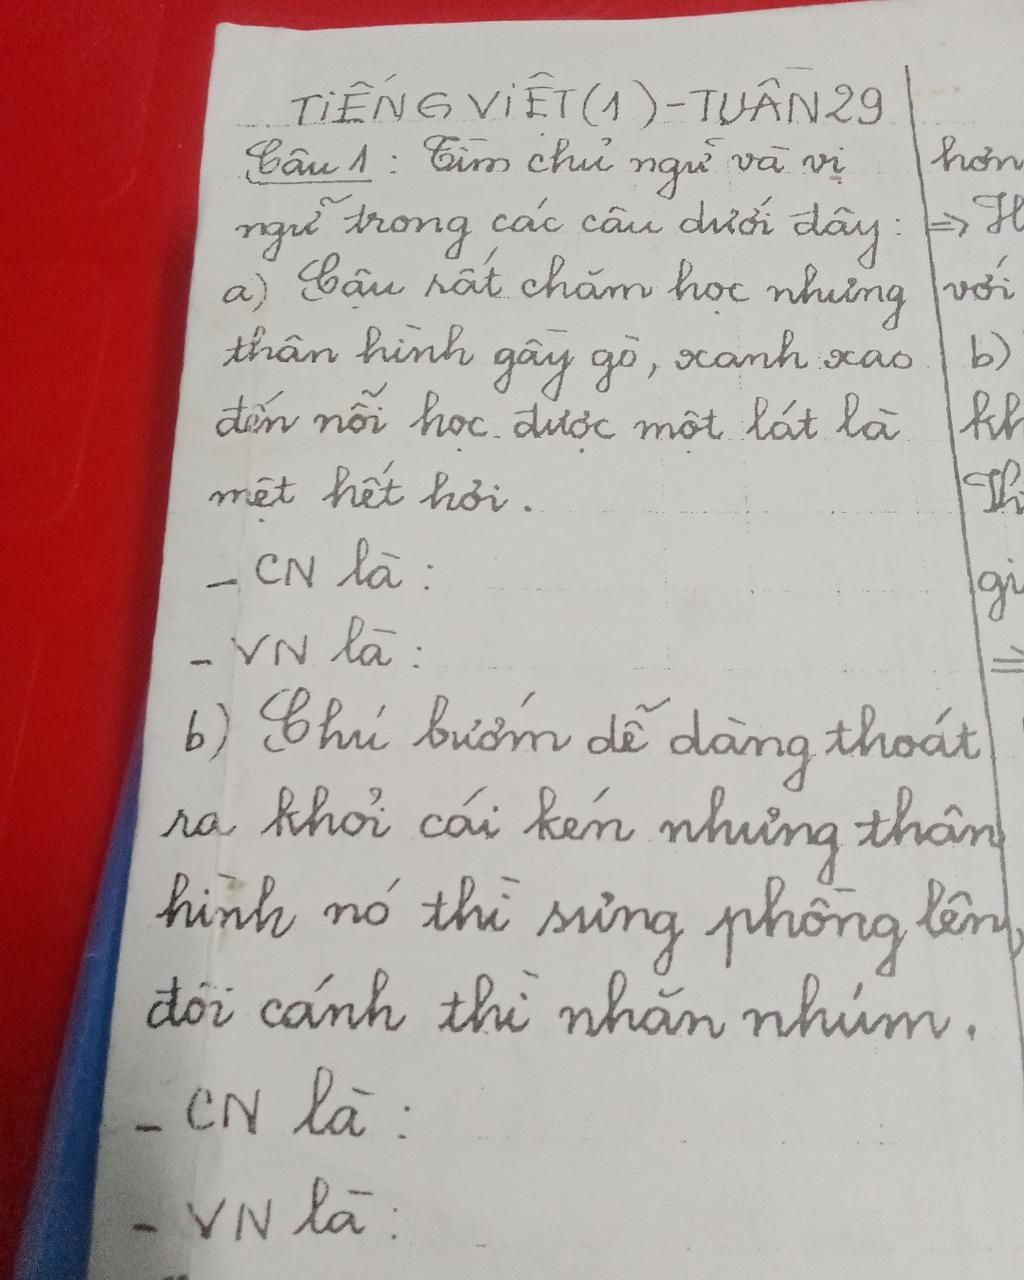 TIẾNG VIỆT (1) - TUẦN 29
Câu 1 : Tìm chủ ngữ và vị
ngữ trong các câu dưới đây :
a) Cậu rất chăm học nhưng
thân hình gầy gò, xanh xao
đến nỗi học được một lát là
mệt hết hơi.
- CN là :
- VN là :
b) Chú bướm dễ dàng thoát
ra khỏi cái kén nhưng thân
hình nó thì sưng phồng lên,
đôi cánh thì nhăn nhúm.
- CN là :
- VN là :
hơn
=>
với
b)